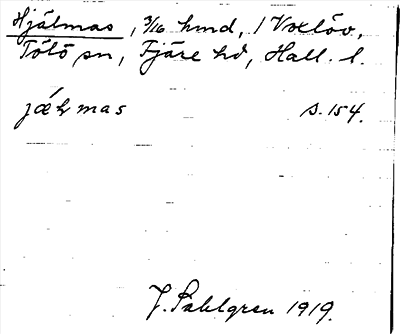 Hjälmas, 3/16 hmd, i Voxlöv,
Tölö sn, Fjäre hd, Hall. l.
s. 154.
J. Sahlgren 1919.